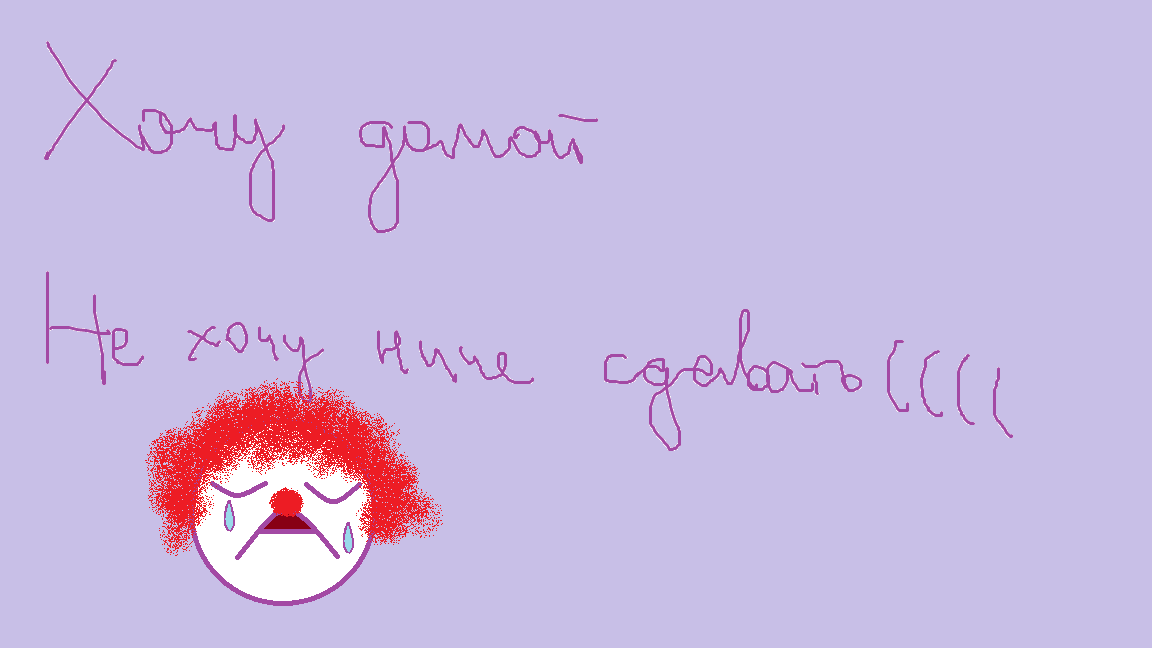 Хочу домой
Не хочу ниче сдевать((((